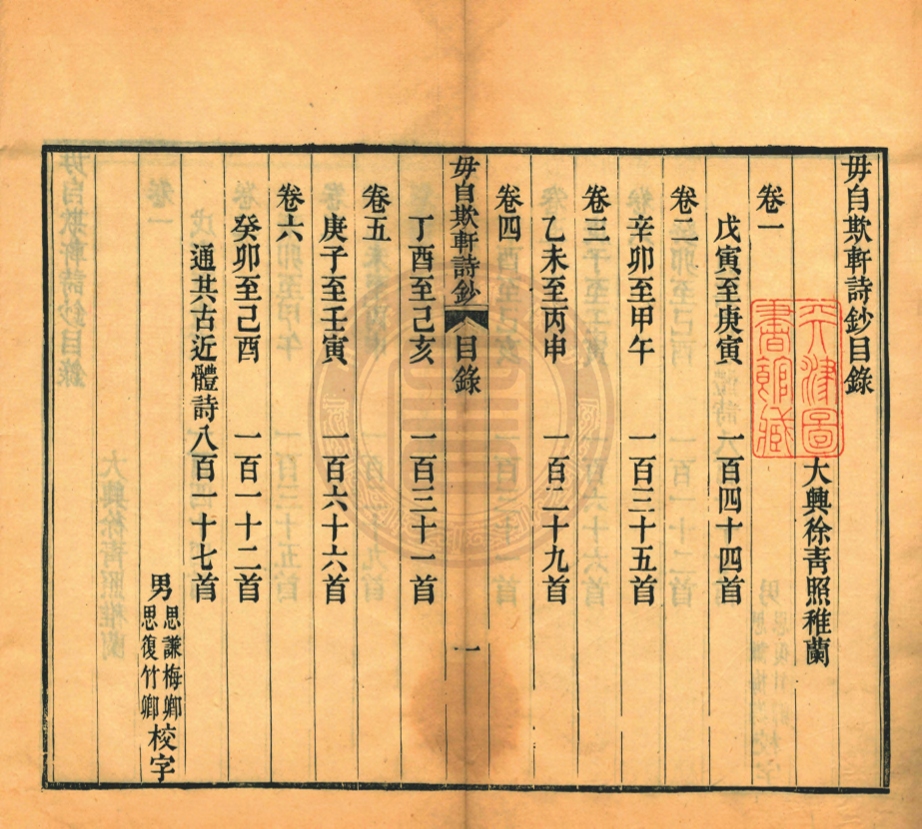 毋自欺軒詩鈔目錄
天津圖
書館藏
大興徐靑照稚蘭
卷一
戊寅至庚寅 一百四十四首
卷二
辛卯至甲午 一百三十五首
卷三
乙未至丙申 一百二十九首
卷四
毋自欺軒詩鈔 目錄 一
丁酉至己亥 一百三十一首
卷五
庚子至壬寅 一百六十六首
卷六
癸卯至己酉 一百一十二首
通共古近體詩八百一十七首
男 思謙梅卿 思復竹卿 校字